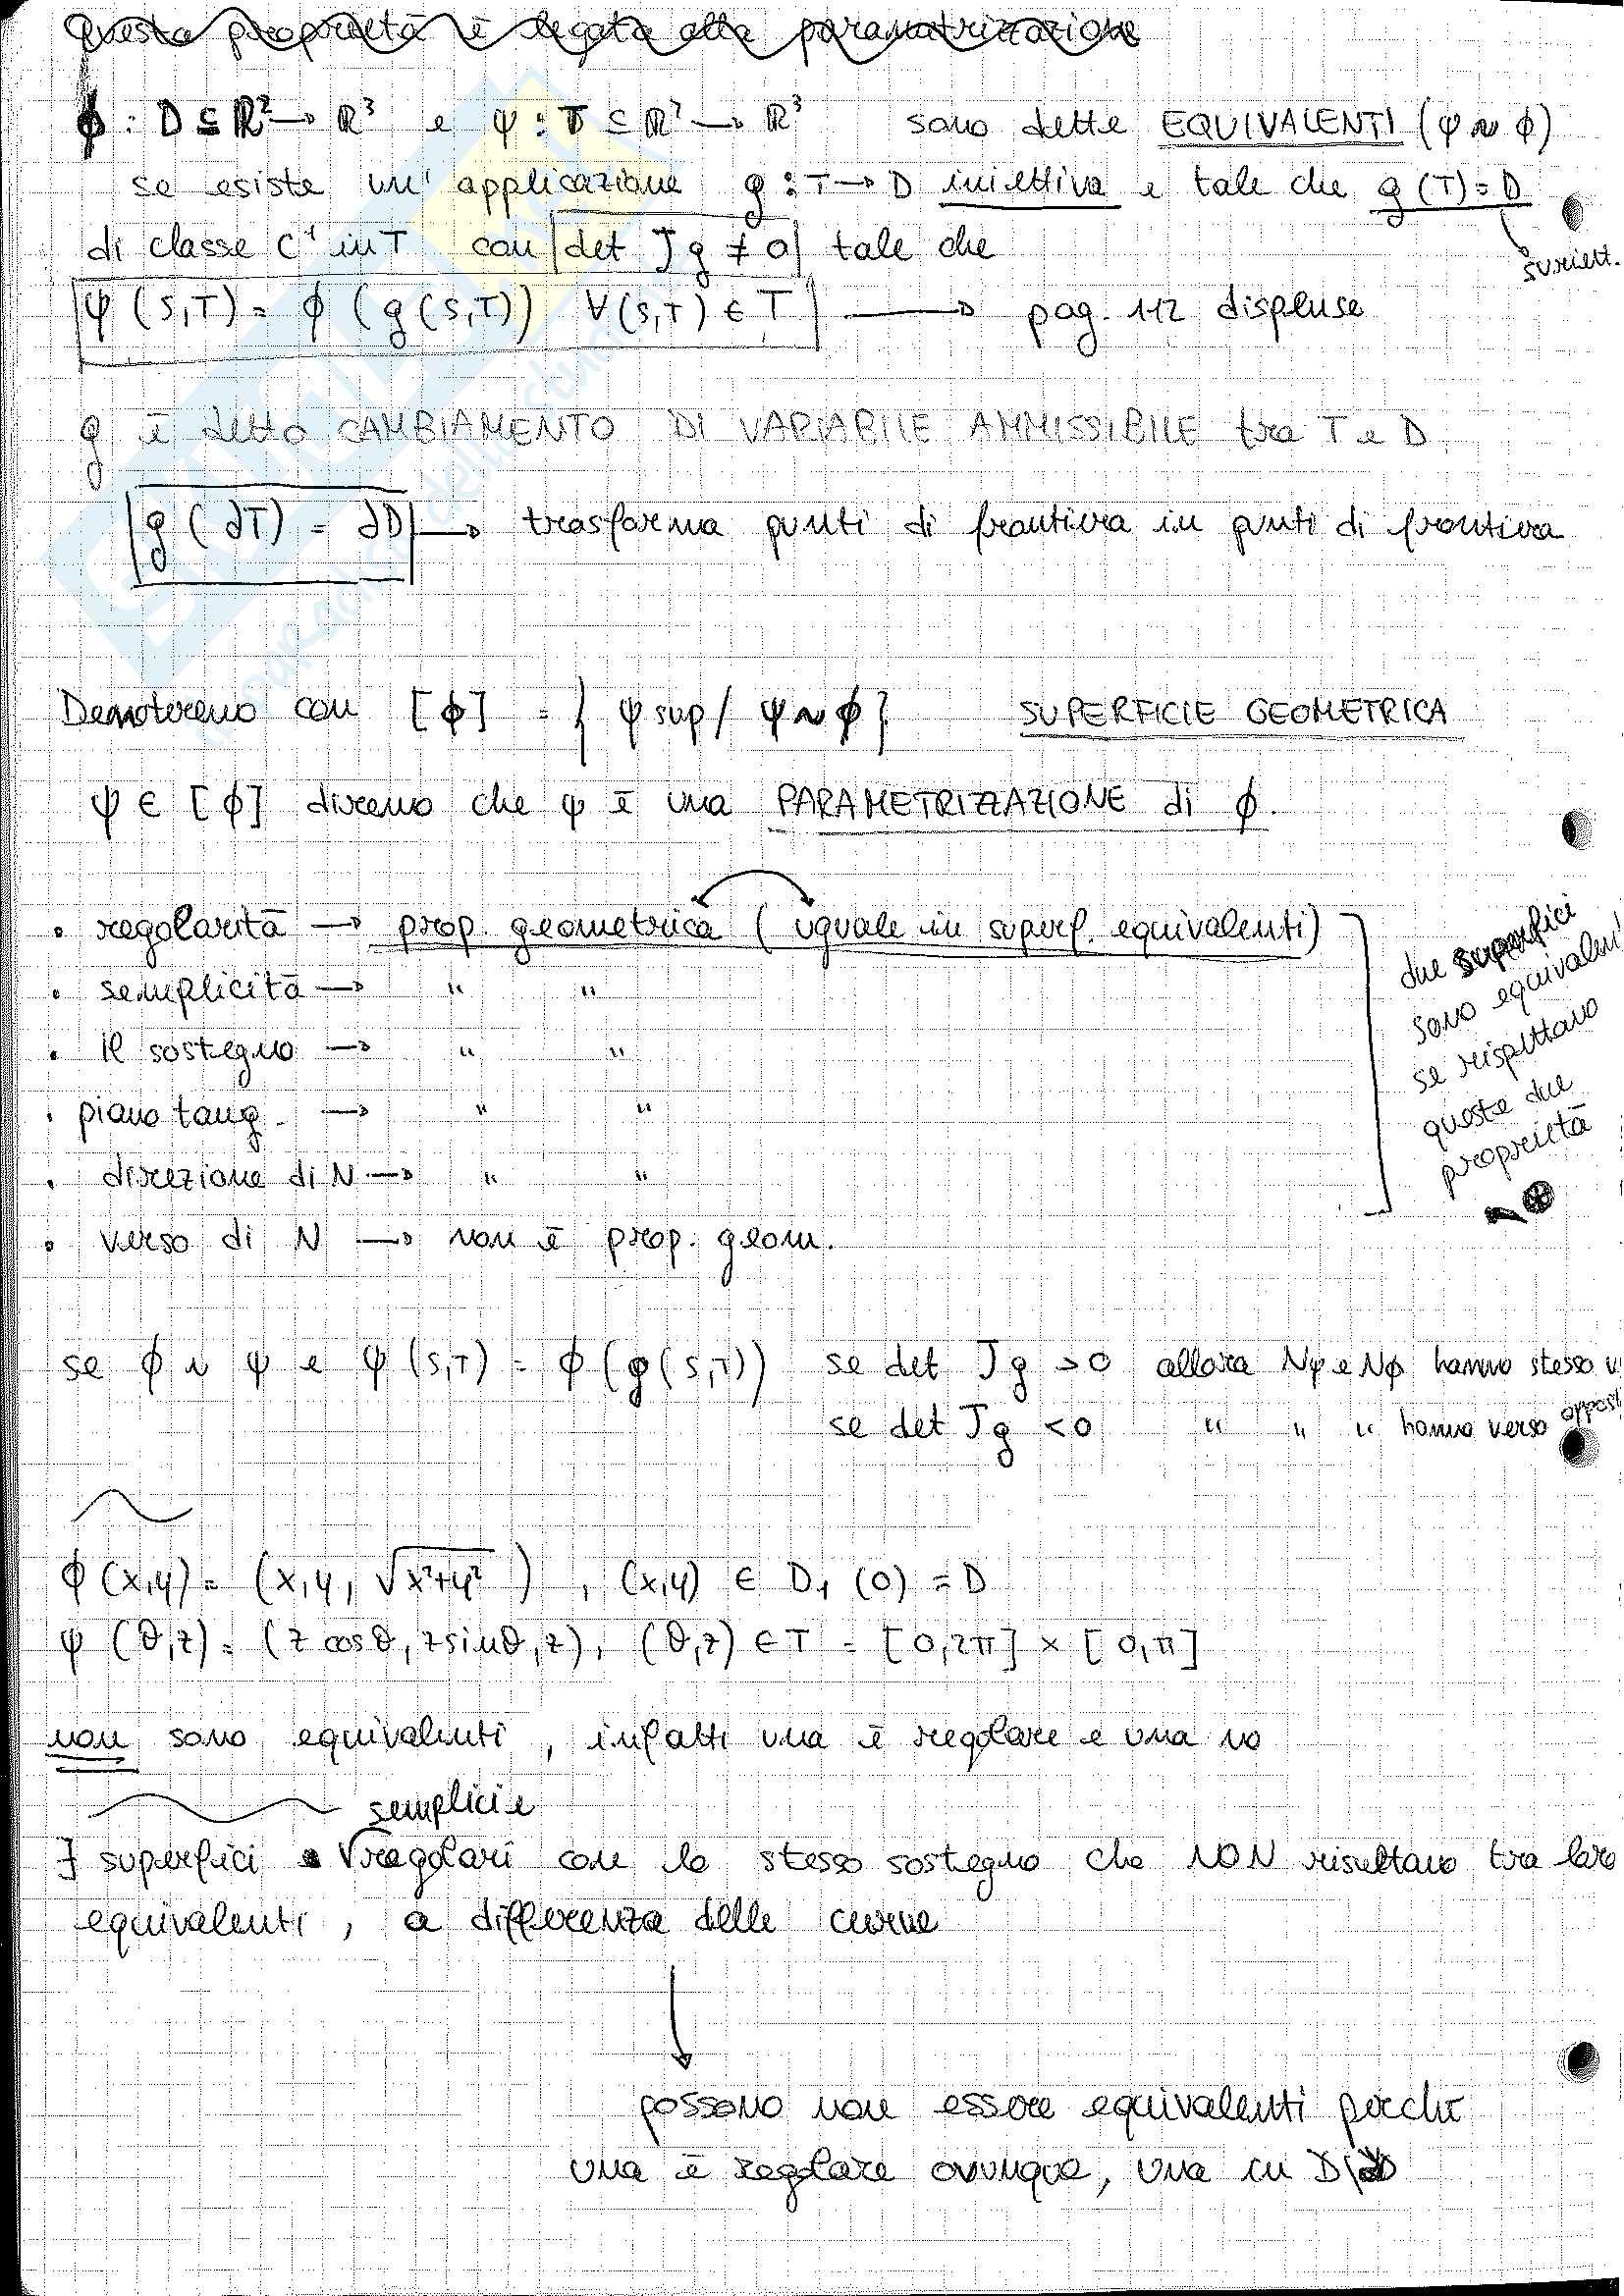 Questa proprietà è legata alla parametrizzazione
ϕ : D ⊆ ℝ² → ℝ³ e ψ : T ⊆ ℝ² → ℝ³ sono dette EQUIVALENTI (ψ ~ ϕ)
se esiste un' applicazione g : T → D iniettiva e tale che g(T) = D
suriett.
di classe C¹ in T con det Jg ≠ 0 tale che
ψ(s,T) = ϕ(g(s,T)) ∀(s,T) ∈ T → pag. 112 dispense
g è detto CAMBIAMENTO DI VARIABILE AMMISSIBILE tra T e D
g(∂T) = ∂D → trasforma punti di frontiera in punti di frontiera
Denoteremo con [ϕ] = { ψ sup / ψ ~ ϕ } SUPERFICIE GEOMETRICA
ψ ∈ [ϕ] diremo che ψ è una PARAMETRIZZAZIONE di ϕ.
• regolarità → prop. geometrica (uguale in superf. equivalenti)
• semplicità → " "
• il sostegno → " "
• piano tang. → " "
• direzione di N → " "
• verso di N → non è prop. geom.
due superfici
sono equivalen
se rispettano
queste due
proprietà
se ϕ ~ ψ e ψ(s,T) = ϕ(g(s,T)) se det Jg > 0 allora Nψ e Nϕ hanno stesso v
se det Jg < 0 " " " hanno verso oppost
ϕ(x,y) = (x,y, √x²+y² ), (x,y) ∈ D₁(0) = D
ψ(θ,z) = (z cosθ, z sinθ, z), (θ,z) ∈ T = [0,2π] × [0,π]
non sono equivalenti, infatti una è regolare e una no
semplici e
∃ superfici regolari con lo stesso sostegno che NON risultano tra loro
equivalenti, a differenza delle curve
possono non essere equivalenti perche
una è regolare ovunque, una in D\